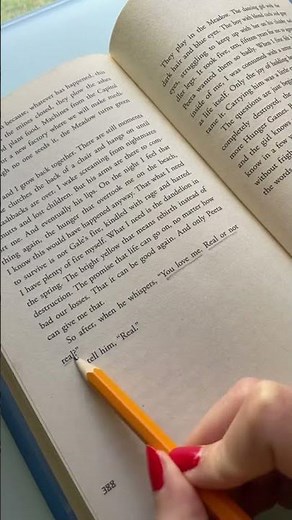 because, whatever has happened, this
the mines closed, they plow the ashes
plant food. Machines from the Capitol
for a new factory where we will make
though no one seeds it, the Meadow turns green
and I grow back together. There are still moments
clutches the back of a chair and hangs on until
flashbacks are over. I wake screaming from nightmares
mutts and lost children. But his arms are there to com-
fort me. And eventually his lips. On the night I feel that
thing again, the hunger that overtook me on the beach,
I know this would have happened anyway. That what I need
to survive is not Gale's fire, kindled with rage and hatred.
I have plenty of fire myself. What I need is the dandelion in
the spring. The bright yellow that means rebirth instead of
destruction. The promise that life can go on, no matter how
bad our losses. That it can be good again. And only Peeta
can give me that.
So after, when he whispers, "You love me. Real or not
real?"
tell him, "Real."
388
They play in the Meadow. The dancing girl with the
dark hair and blue eyes. The boy with blond curls and gray
eyes, struggling to keep up with her on his chubby
dler legs. It took five, ten, fifteen years for me to agree.
Peeta wanted them so badly. When I first
inside of me, I was consumed with a terror
as life itself. Only the joy of holding her
tame it. Carrying him was a little easier
The questions are just
completely destroyed, the
more Hunger Games. But
and the girl knows
know in a few
without fright
the words